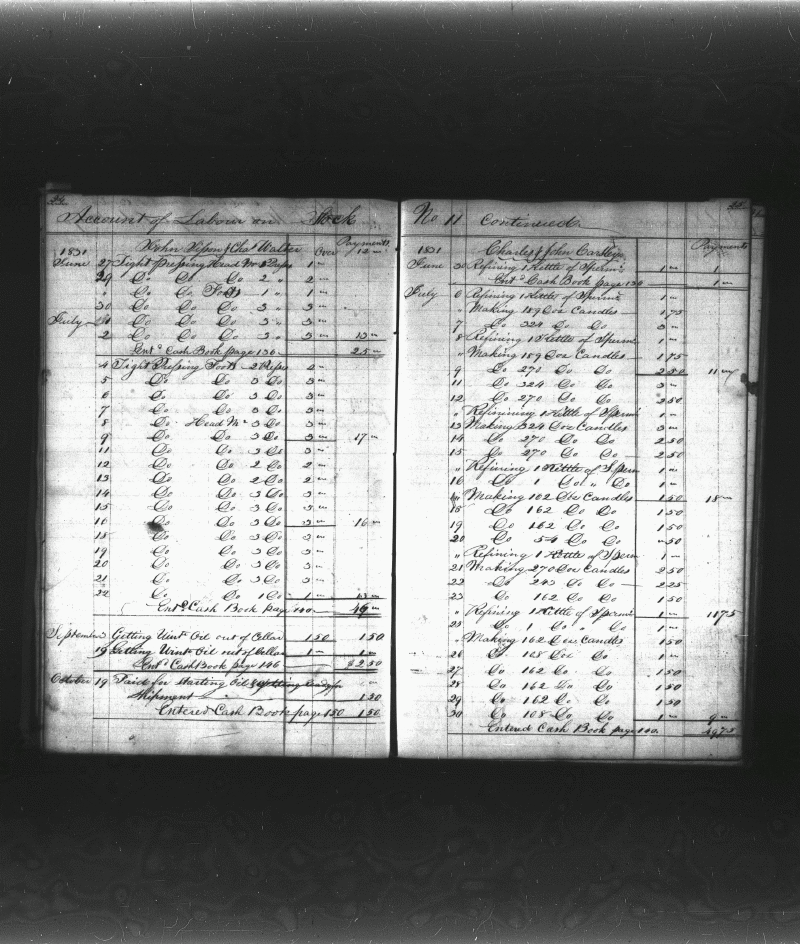 Account of Labour on Stock
John & Chas Walter Payments
1831 Over 12 "
June 27 Tight Pressing Head Mr 1 " 
29 Do Do 2 " 2 "
" Do Do Foots 1 " 1 "
30 Do Do 3 " 3 "
July Do Do 3 " 3 "
2 Do Do 3 " 3 " 13 "
Entd Cash Book page 136 25 "
4 Tight Pressing Foots 2 2 "
5 Do Do 3 Do 3 "
6 Do Do 3 Do 3 "
7 Do Do 3 Do 3 "
8 Do Head Mr 3 Do 3 "
9 Do Do 3 Do 3 " 17 "
11 Do Do 3 Do 3 "
12 Do Do 2 Do 2 "
13 Do Do 2 Do 2 "
14 Do Do 3 Do 3 "
15 Do Do 3 Do 3 "
16 Do Do 3 Do 3 " 16 "
18 Do Do 3 Do 3 "
19 Do Do 3 Do 3 "
20 Do Do 3 Do 3 "
21 Do Do 3 Do 3 "
22 Do Do 1 Do 1 "
Entd Cash Book page 140 49 "
September Getting Wint Oil out of Cellar 1 50 1 50
19 Getting Wint Oil out of Cellar 1 " 1 "
Entd Cash Book page 146 $2.50
October 19 Paid for starting Oil
Shipment 1 50
Entered Cash Book page 150 1 50
No 11 Continued
Charles & John Payments
1831
June 30 Refining 1 Kettle of Sperm 1 " 1
Entd Cash Book page 136 1 "
July 6 Refining 1 Kettle of Sperm 1 "
" Making 189 Doz Candles 1 75
7 Do 324 Do Do 3 "
8 Refining 1 Kettle of Sperm 1 "
" Making 189 Doz Candles 1 75
9 Do 270 Do Do 2 50 11 "
11 Do 324 Do Do 3 "
12 Do 270 Do Do 2 50
" Refining 1 Kettle of Sperm 1 "
13 Making 324 Doz Candles 3 "
14 Do 270 Do Do 2 50
15 Do 270 Do Do 2 50
" Refining 1 Kettle of Sperm 1 "
16 Do 1 Do " Do 1 "
" Making 102 Doz Candles 1 50 18 "
18 Do 162 Do Do 1 50
19 Do 162 Do Do 1 50
20 Do 54 Do Do " 50
" Refining 1 Kettle of Sperm 1 "
21 Making 270 Doz Candles 2 50
22 Do 243 Do Do 2 25
23 Do 162 Do Do 1 50
" Refining 1 Kettle of Sperm 1 " 11 75
25 Do 1 Do " Do 1 "
" Making 162 Doz Candles 1 50
26 Do 108 Doz Do 1 "
27 Do 162 Do Do 1 50
28 Do 162 Do Do 1 50
29 Do 162 Do Do 1 50
30 Do 108 Do Do 1 " 9 "
Entered Cash Book page 140 49 75